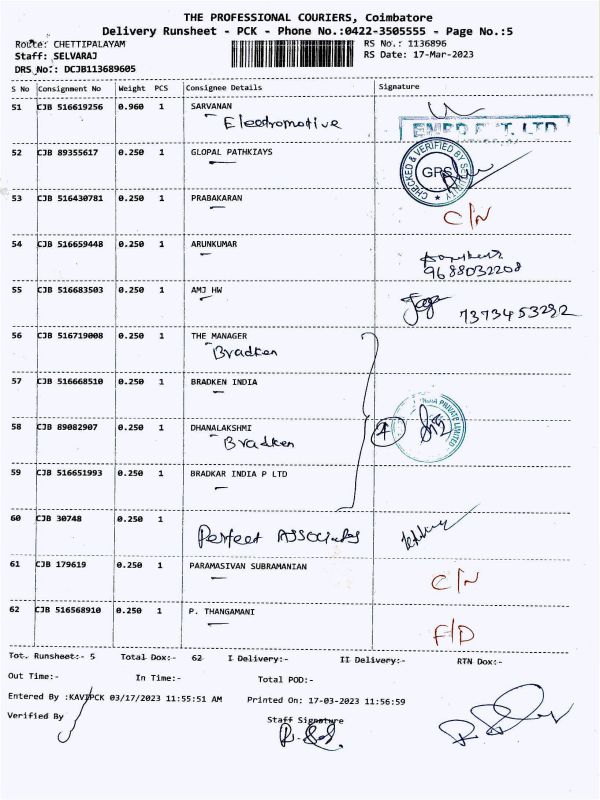 THE PROFESSIONAL COURIERS, Coimbatore
Delivery Runsheet - PCK - Phone No.:0422-3505555 - Page No.:5
Route: CHETTIPALAYAM RS No.: 1136896
Staff: SELVARAJ RS Date: 17-Mar-2023
DRS No.: DCJB113689605
S No Consignment No Weight PCS Consignee Details Signature
51 CJB 516619256 0.960 1 SARVANAN
Electromotive
52 CJB 89355617 0.250 1 GLOPAL PATHKIAYS
CHECKED & VERIFIED BY SECURITY
GRS
53 CJB 516430781 0.250 1 PRABAKARAN
C/N
54 CJB 516659448 0.250 1 ARUNKUMAR
9688032208
55 CJB 516683503 0.250 1 AMJ HW
7373453292
56 CJB 516719008 0.250 1 THE MANAGER
Bradken
57 CJB 516668510 0.250 1 BRADKEN INDIA
58 CJB 89082907 0.250 1 DHANALAKSHMI
Bradken
4
INDIA PRIVATE LIMITED
59 CJB 516651993 0.250 1 BRADKAR INDIA P LTD
60 CJB 30748 0.250 1
Perfect Associates
61 CJB 179619 0.250 1 PARAMASIVAN SUBRAMANIAN
C/N
62 CJB 516568910 0.250 1 P. THANGAMANI
F/D
Tot. Runsheet:- 5 Total Dox:- 62 I Delivery:- II Delivery:- RTN Dox:-
Out Time:- In Time:- Total POD:-
Entered By :KAVIPCK 03/17/2023 11:55:51 AM Printed On: 17-03-2023 11:56:59
Verified By Staff Signature